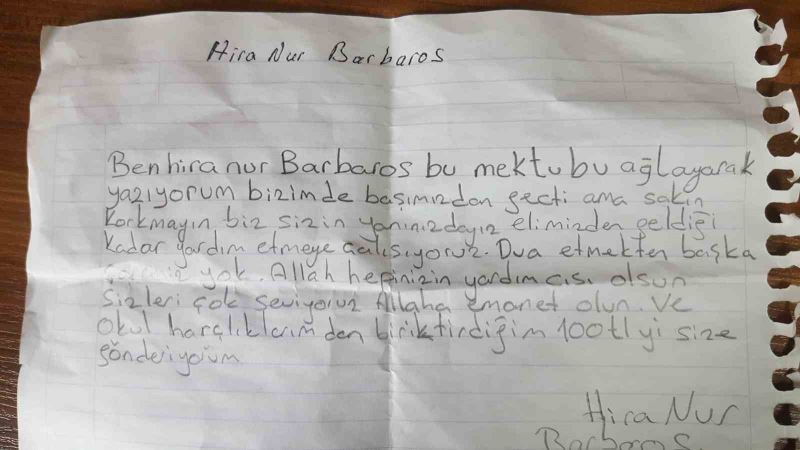 Hira Nur Barbaros
Ben hira nur Barbaros bu mektubu ağlayarak
yazıyorum bizimde başımızdan geçti ama sakın
korkmayın biz sizin yanınızdayız elimizden geldiği
kadar yardım etmeye çalışıyoruz. Dua etmekten başka
yok. Allah hepinizin yardımcısı olsun
Sizleri çok seviyoruz Allaha emanet olun. Ve
Okul harçlıklarımdan biriktirdiğim 100tl yi size
gönderiyorum
Hira Nur
Barbaros